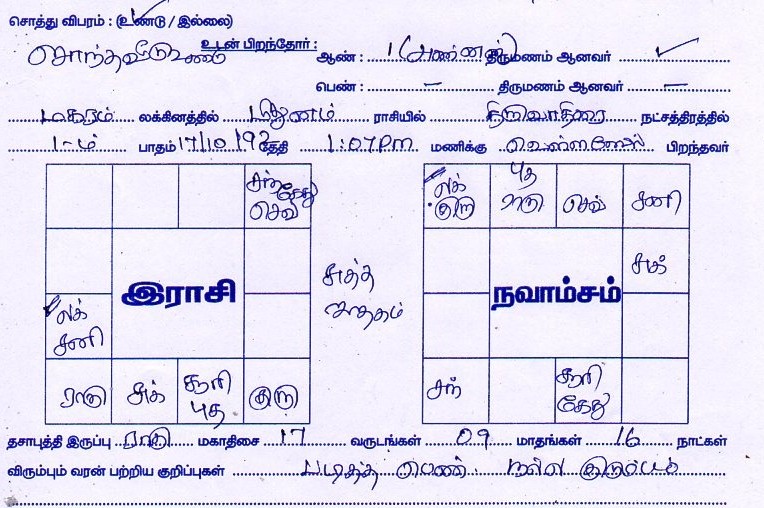 சொத்து விபரம் : (உண்டு / இல்லை)
சொந்தவீடு உண்டு உடன் பிறந்தோர் : ஆண் : 1 (அண்ணன்) திருமணம் ஆனவர் ✓
பெண் : – திருமணம் ஆனவர் –
மகரம் லக்கினத்தில் மிதுனம் ராசியில் திருவாதிரை நட்சத்திரத்தில்
1-ம் பாதம் 17/10/92 தேதி 1:07Pm மணிக்கு பிறந்தவர்
சந் கேது செவ்
லக் சனி
இராசி
ராகு சுக் சூரி புத குரு
சுத்த ஜாதகம்
லக் குரு புத ராகு செவ் சனி
சுக்
நவாம்சம்
சந் சூரி கேது
தசாபுத்தி இருப்பு ராகு மகாதிசை 17 வருடங்கள் 09 மாதங்கள் 16 நாட்கள்
விரும்பும் வரன் பற்றிய குறிப்புகள் படித்த பெண் நல்ல குடும்பம்